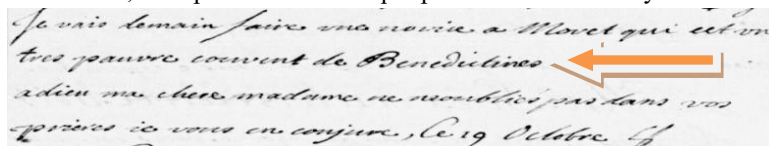 Je vais demain faire une novice a Moret qui est un
tres pauvre couvent de Benedictines
adieu ma chere madame ne moubliés pas dans vos
prieres ie vous en conjure, Ce 19 Octobre